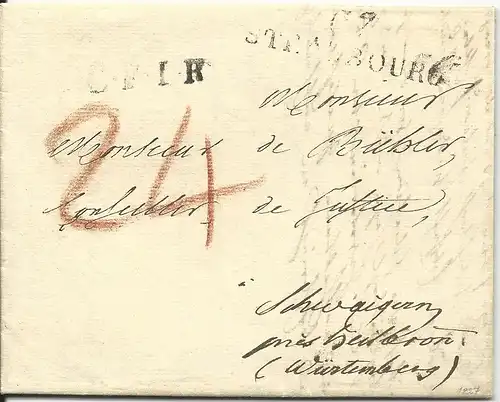 67
STRASBOURG
C.F.I.R
24
Monsieur
Monsieur de Bühler,
Conseiller de Justice,
à Schwaigern
près Heilbron
(Würtemberg)
1827